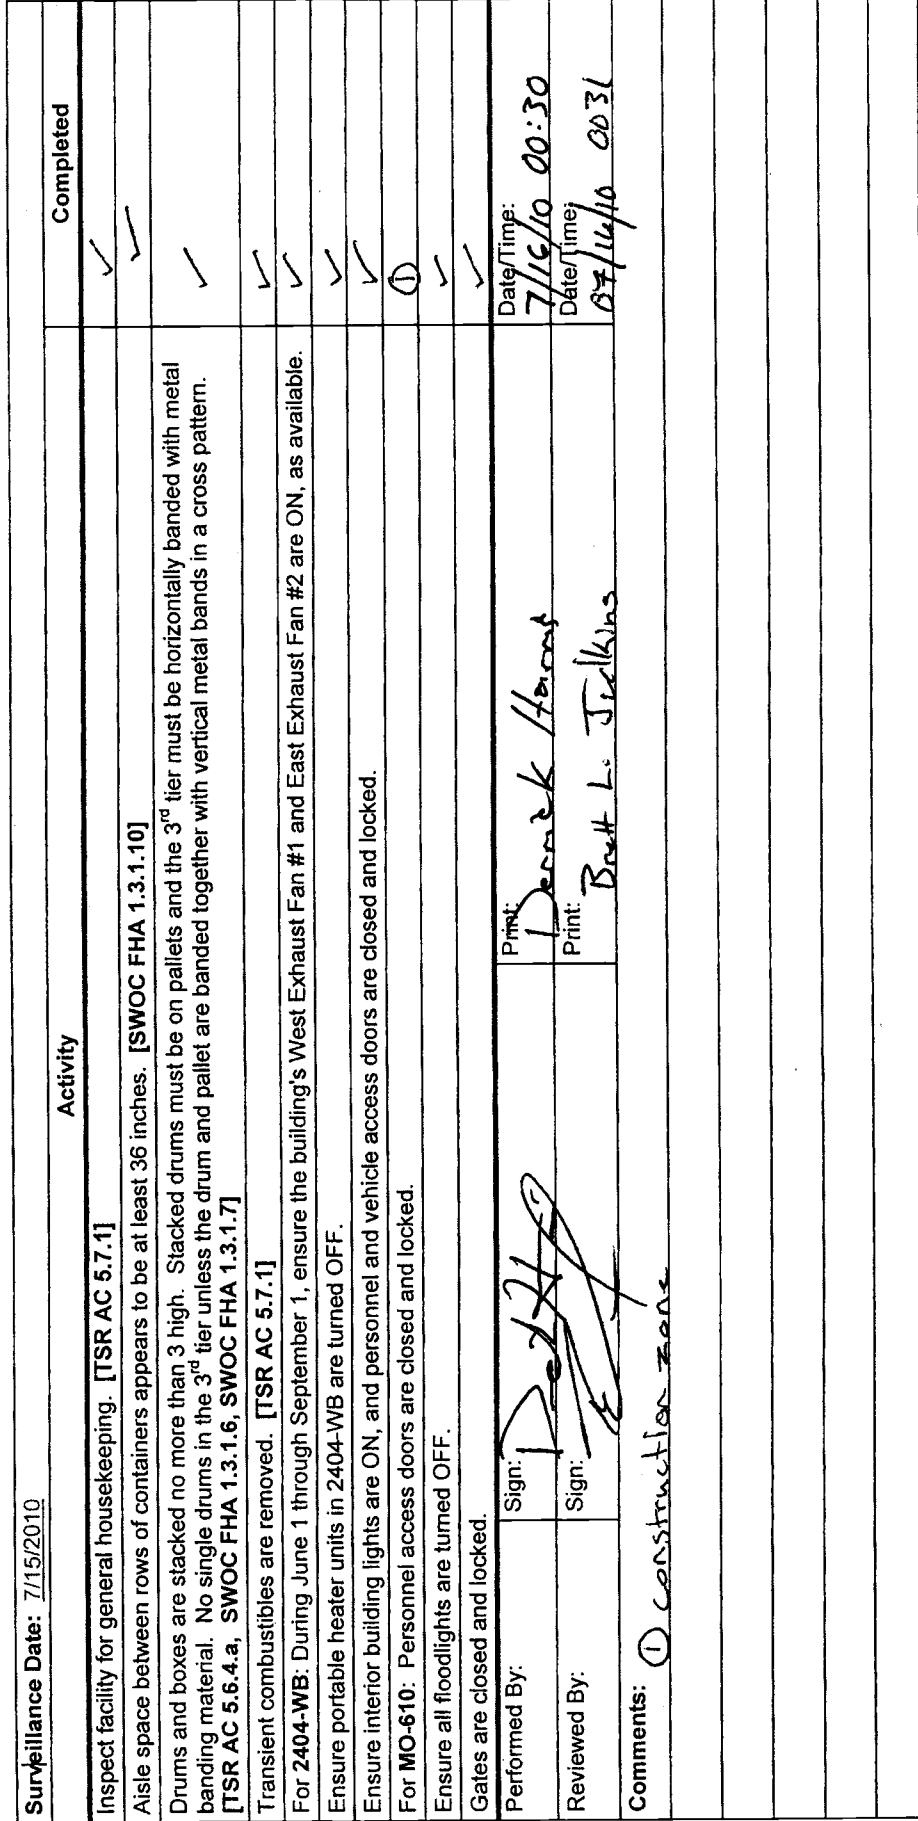 Surveillance Date: 7/15/2010
Activity Completed
Inspect facility for general housekeeping. [TSR AC 5.7.1] ✓
Aisle space between rows of containers appears to be at least 36 inches. [SWOC FHA 1.3.1.10] ✓
Drums and boxes are stacked no more than 3 high. Stacked drums must be on pallets and the 3rd tier must be horizontally banded with metal
banding material. No single drums in the 3rd tier unless the drum and pallet are banded together with vertical metal bands in a cross pattern. ✓
[TSR AC 5.6.4.a, SWOC FHA 1.3.1.6, SWOC FHA 1.3.1.7]
Transient combustibles are removed. [TSR AC 5.7.1] ✓
For 2404-WB: During June 1 through September 1, ensure the building's West Exhaust Fan #1 and East Exhaust Fan #2 are ON, as available. ✓
Ensure portable heater units in 2404-WB are turned OFF. ✓
Ensure interior building lights are ON, and personnel and vehicle access doors are closed and locked. ✓
For MO-610: Personnel access doors are closed and locked. ①
Ensure all floodlights are turned OFF. ✓
Gates are closed and locked. ✓
Performed By: Sign: Print: Derrick Harms Date/Time: 7/16/10 00:30
Reviewed By: Sign: Print: Brett L. Date/Time: 07/16/10 0031
Comments: ① construction zone